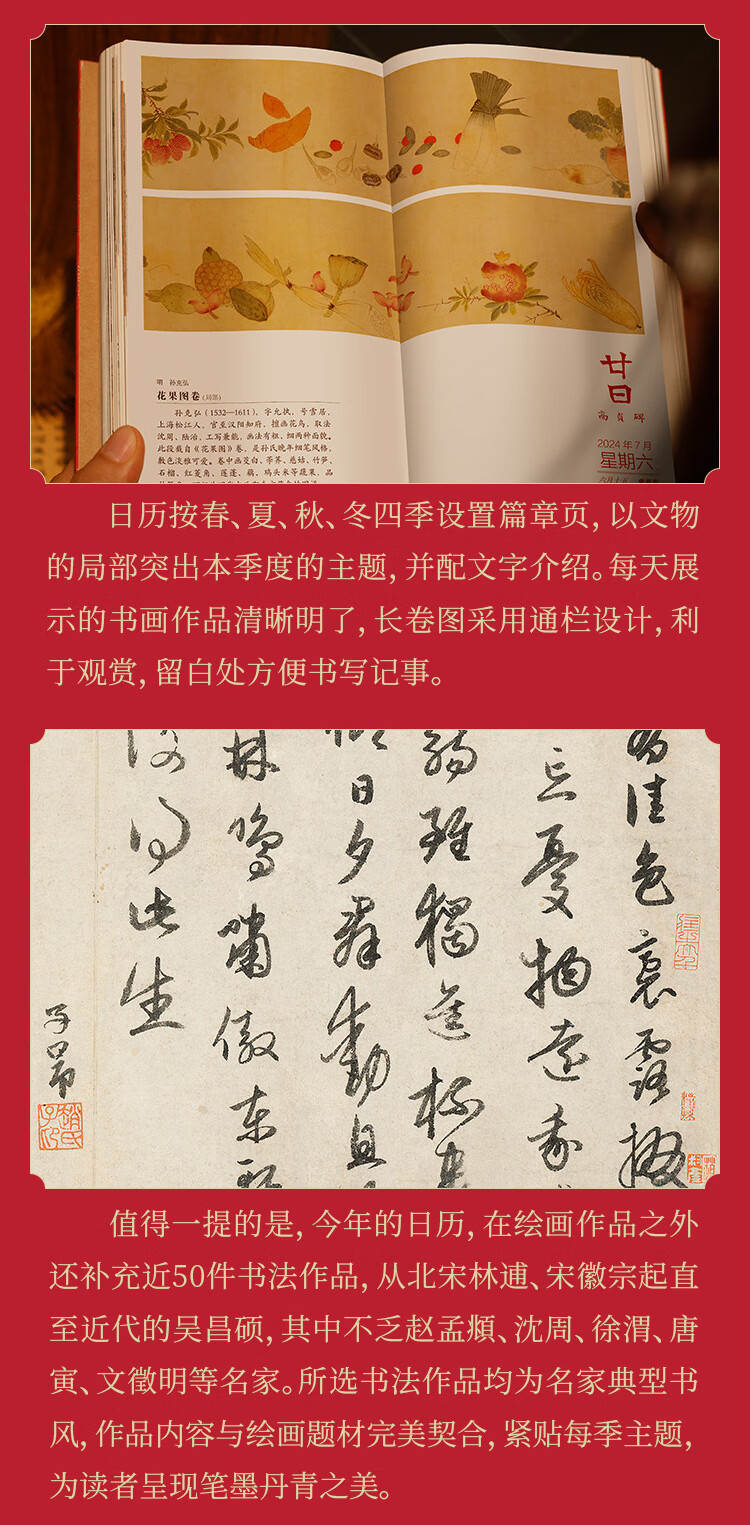 明 孙克弘
花果图卷(局部)
孙克弘(1532—1611),字允执,号雪居,
上海松江人,官至汉阳知府,擅画花鸟,取法
沈周、陆治,工写兼能,画法有粗、细两种面貌。
此段截自《花果图》卷,是孙氏晚年细笔风格,
敷色淡雅可爱。卷中画茭白、荸荠、慈姑、竹笋、
石榴、红菱角、莲蓬、藕、鸡头米等蔬果,品
廿日
高贞碑
2024年7月
星期六
六月十五
日历按春、夏、秋、冬四季设置篇章页,以文物
的局部突出本季度的主题,并配文字介绍。每天展
示的书画作品清晰明了,长卷图采用通栏设计,利
于观赏,留白处方便书写记事。
佳色裛露掇
忘憂物遠我
觴雖獨進杯
日夕群動
林鳴嘯傲東
復得此生
子昂
值得一提的是,今年的日历,在绘画作品之外
还补充近50件书法作品,从北宋林逋、宋徽宗起直
至近代的吴昌硕,其中不乏赵孟頫、沈周、徐渭、唐
寅、文徵明等名家。所选书法作品均为名家典型书
风,作品内容与绘画题材完美契合,紧贴每季主题,
为读者呈现笔墨丹青之美。